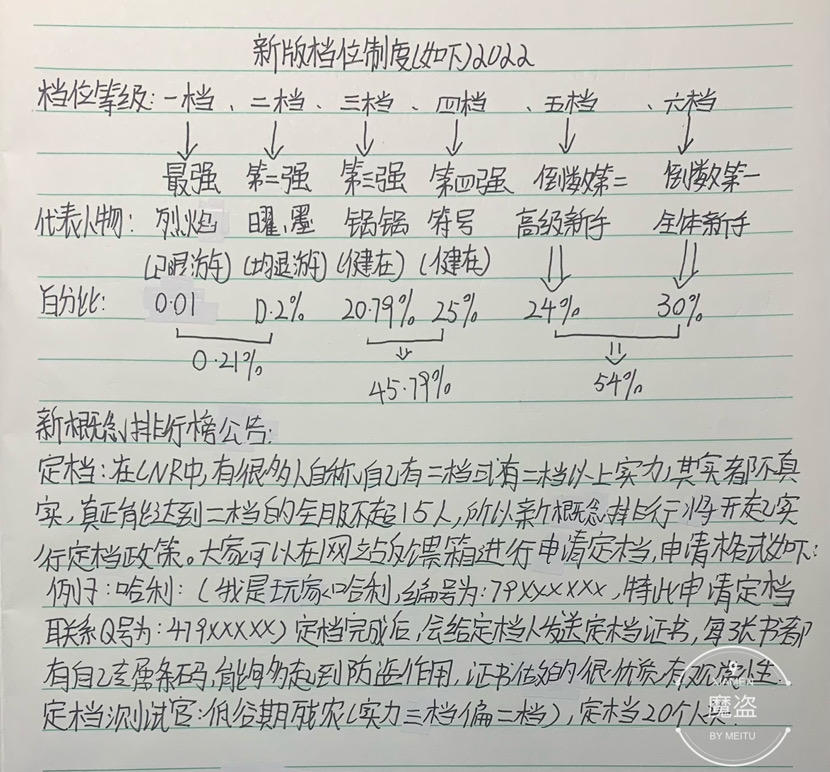 新版档位制度(如下)2022
档位等级:一档、二档、三档、四档、五档、六档
最强 第二强 第三强 第四强 倒数第二 倒数第一
代表人物: 烈焰 曜、墨 锅锅 符号 高级新手 全体新手
(已退游) (均退游) (健在) (健在)
百分比: 0.01 0.2% 20.79% 25% 24% 30%
0.21% 45.79% 54%
新概念排行榜公告:
定档:在CNR中,有很多人自称自己有二档或有二档以上实力,其实都不真
实,真正能达到二档的全服不超15人,所以新概念排行将开起实
行定档政策。大家可以在网站反馈箱进行申请定档,申请格式如下:
例子:哈利:(我是玩家哈利,编号为:79XXXXXX,特此申请定档
联系Q号为:479XXXXX)定档完成后,会给定档人发送定档证书,每张书都
有自己专属条码,能够起到防盗作用,证书做的很优质,有观赏性.
定档测试官:低谷期残农(实力三档偏二档),定档20个人员.
XIAMEN
魔盗
BY MEITU